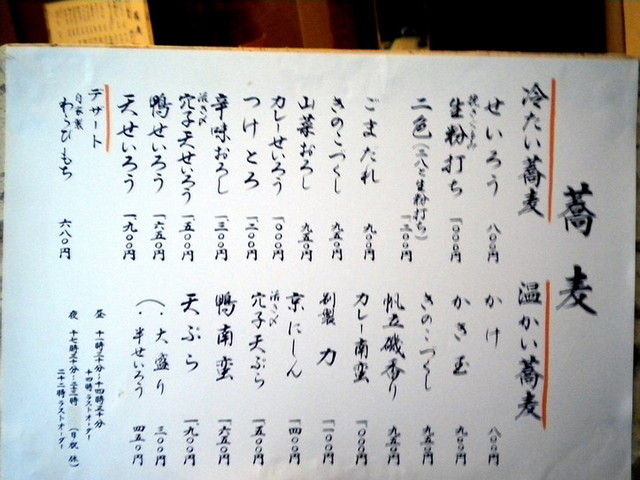 蕎麦
冷たい蕎麦
せいろう 八〇〇円
挽きぐるみ
生粉打ち 一、〇〇〇円
二色(二八と生粉打ち) 一、二〇〇円
ごまだれ 九〇〇円
きのこつくし 九五〇円
山菜おろし 九五〇円
カレーせいろう 一、〇〇〇円
つけとろ 一、二〇〇円
辛味おろし 一、三〇〇円
活き〆
穴子天せいろう 一、五〇〇円
鴨せいろう 一、六五〇円
天せいろう 一、九〇〇円
デザート
自家製
わらびもち 六八〇円
温かい蕎麦
かけ 八〇〇円
かき玉 九〇〇円
きのこつくし 九五〇円
帆立磯香り 九五〇円
カレー南蛮 一、〇〇〇円
別製 力 一、一〇〇円
京にしん 一、四〇〇円
活き〆
穴子天ぷら 一、五〇〇円
鴨南蛮 一、六五〇円
天ぷら 一、九〇〇円
(・大盛り 三〇〇円
・半せいろう 四五〇円
昼 十一時三十分〜十四時三十分
十四時ラストオーダー
夜 十七時三十分〜二十二時 (日祝休)
二十二時ラストオーダー